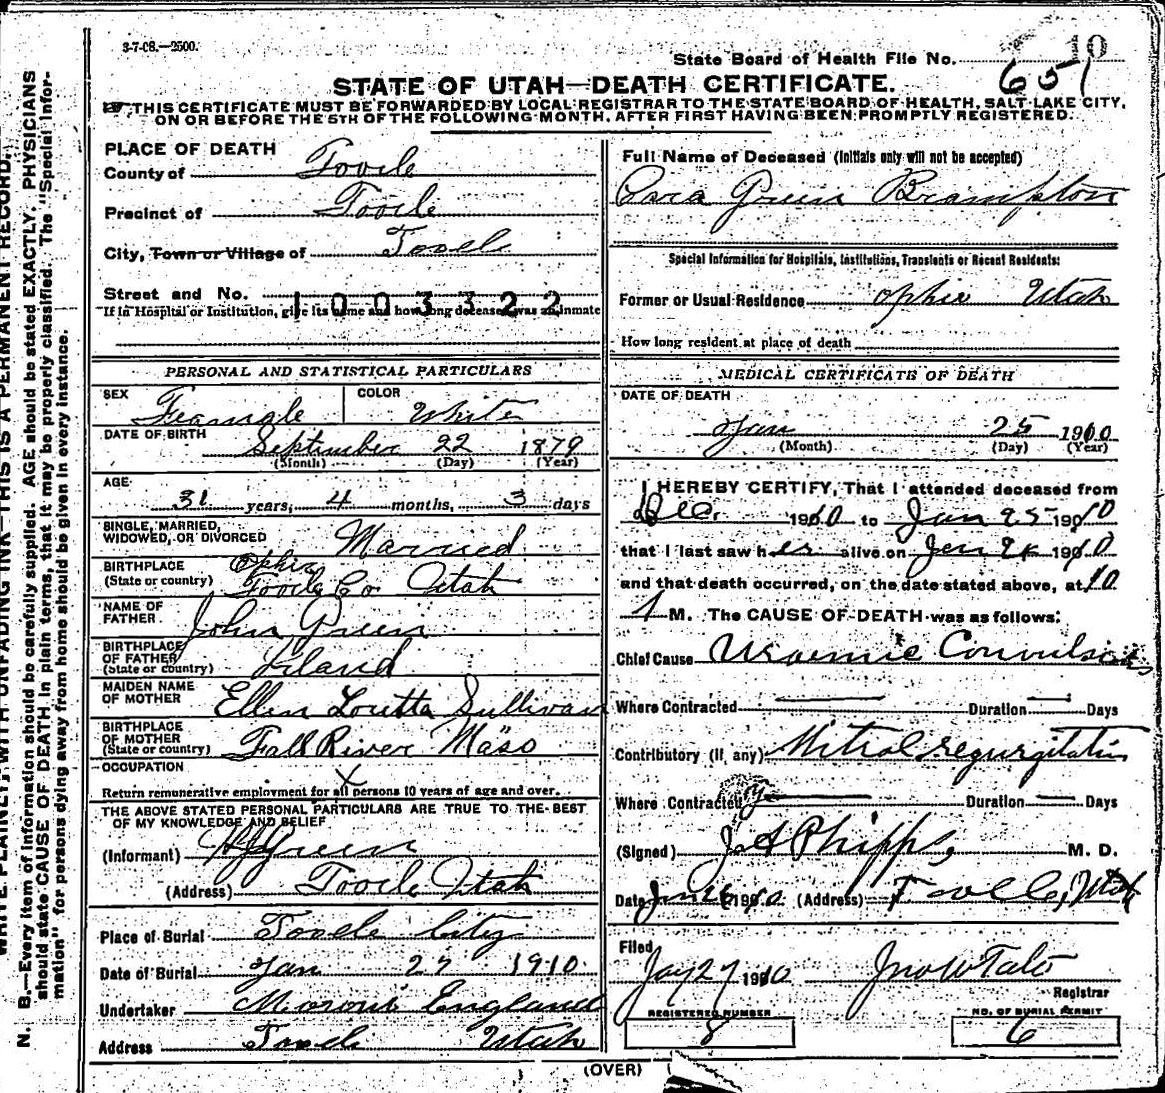 3-7-08.—2500.
State Board of Health File No. 10
651
STATE OF UTAH—DEATH CERTIFICATE.
THIS CERTIFICATE MUST BE FORWARDED BY LOCAL REGISTRAR TO THE STATE BOARD OF HEALTH, SALT LAKE CITY,
ON OR BEFORE THE 5TH OF THE FOLLOWING MONTH, AFTER FIRST HAVING BEEN PROMPTLY REGISTERED.
PLACE OF DEATH
County of Tooele
Precinct of Tooele
City, Town or Village of Tooele
Street and No. 1003322
If in Hospital or Institution, give its name and how long deceased was an inmate
PERSONAL AND STATISTICAL PARTICULARS
SEX Feamale COLOR White
DATE OF BIRTH September 22 1879
(Month) (Day) (Year)
AGE 31 years, 4 months, 3 days
SINGLE, MARRIED,
WIDOWED, OR DIVORCED Married
BIRTHPLACE Ophir
(State or country) Tooele Co Utah
NAME OF
FATHER John Green
BIRTHPLACE
OF FATHER
(State or country)
MAIDEN NAME
OF MOTHER Ellen Loretta Sullivan
BIRTHPLACE
OF MOTHER
(State or country) Fall River Mass
OCCUPATION x
Return remunerative employment for all persons 10 years of age and over.
THE ABOVE STATED PERSONAL PARTICULARS ARE TRUE TO THE BEST
OF MY KNOWLEDGE AND BELIEF
(Informant) Green
(Address) Tooele Utah
Place of Burial Tooele City
Date of Burial Jan 27 1910
Undertaker Moroni England
Address Tooele Utah
Full Name of Deceased (Initials only will not be accepted)
Cora Green Brampton
Special Information for Hospitals, Institutions, Transients or Recent Residents:
Former or Usual Residence Ophir Utah
How long resident at place of death
MEDICAL CERTIFICATE OF DEATH
DATE OF DEATH
Jan 25 1910
(Month) (Day) (Year)
I HEREBY CERTIFY, That I attended deceased from
Dec. 1910 to Jan 25 1910
that I last saw her alive on Jan 24 1910
and that death occurred, on the date stated above, at 10
M. The CAUSE OF DEATH was as follows:
Chief Cause Uraemic Convulsions
Where Contracted — Duration — Days
Contributory (if any) Mitral regurgitation
Where Contracted — Duration — Days
(Signed) J A Phipps, M. D.
Date Jan 26 1910 (Address) Tooele, Utah
Filed
Jan 27 1910 Jno W Tate
Registrar
REGISTERED NUMBER
8
NO. OF BURIAL PERMIT
6
(OVER)
WRITE PLAINLY, WITH UNFADING INK—THIS IS A PERMANENT RECORD.
N. B.—Every item of information should be carefully supplied. AGE should be stated EXACTLY. PHYSICIANS
should state CAUSE OF DEATH in plain terms, that it may be properly classified. The "Special Infor-
mation" for persons dying away from home should be given in every instance.